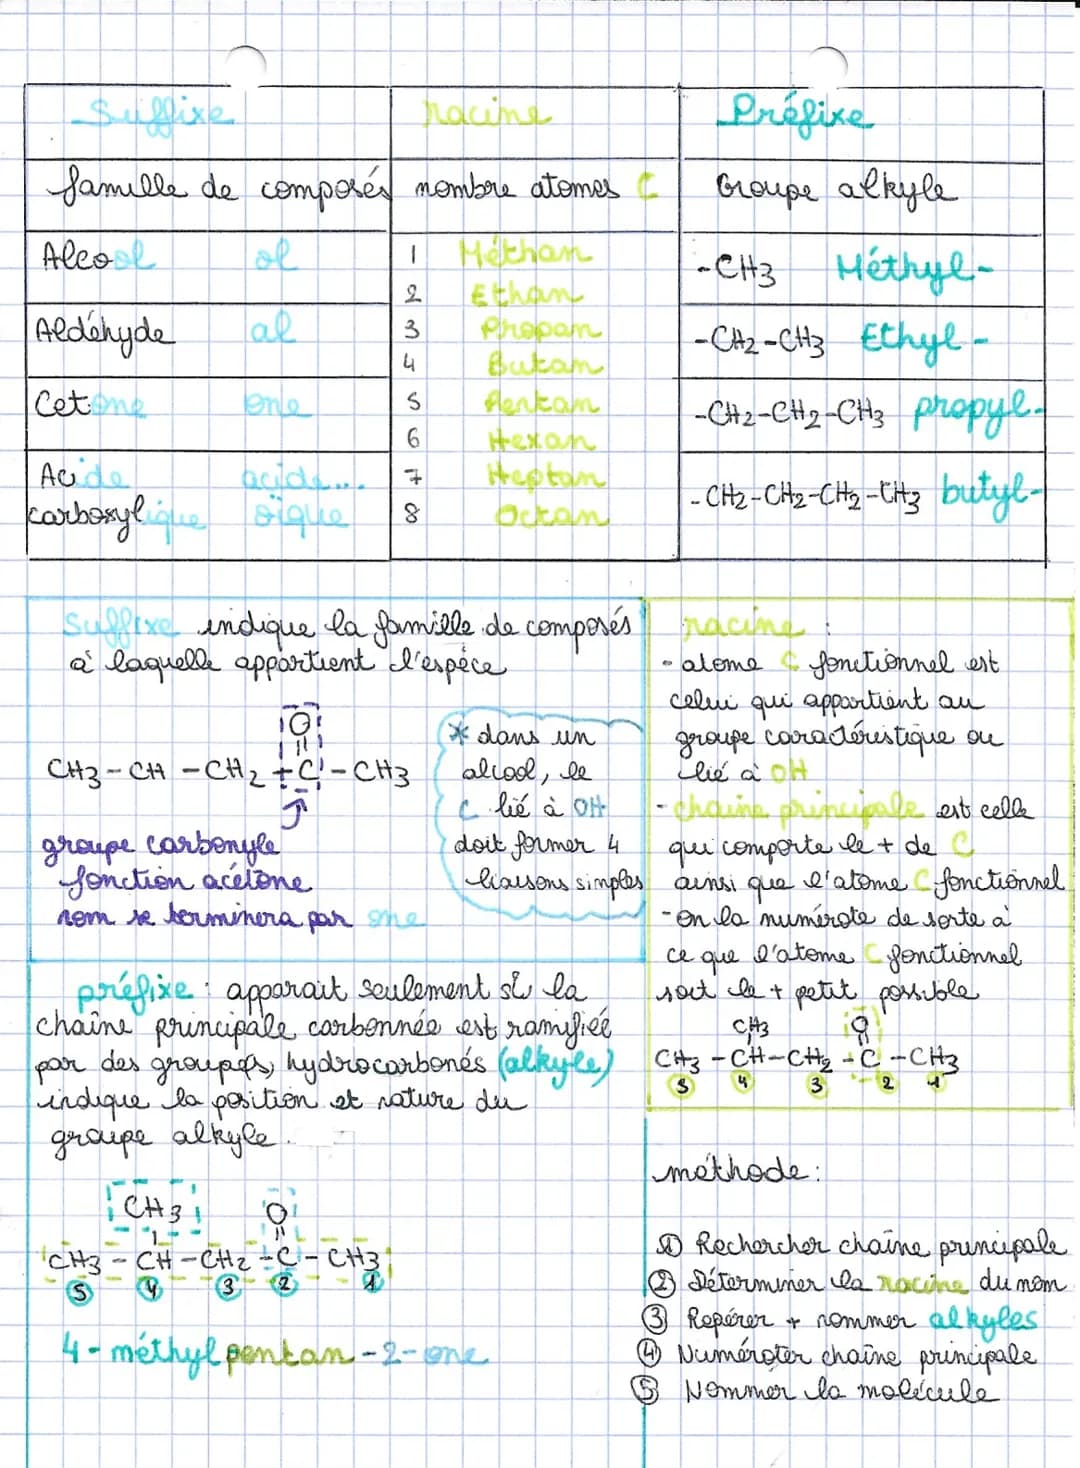 Suffixe racine Préfixe
famille de composés nombre atomes C Groupe alkyle
Alcool ol
Aldéhyde al
Cetone one
Acide acide...
carboxylique oïque
1 Méthan
2 Ethan
3 Propan
4 Butan
5 Pentan
6 Hexan
7 Heptan
8 Octan
-CH3 Méthyl-
-CH2-CH3 Ethyl-
-CH2-CH2-CH3 propyl-
-CH2-CH2-CH2-CH3 butyl-
suffixe indique la famille de composés
à laquelle appartient l'espèce
O
CH3-CH-CH2-C-CH3
groupe carbonyle
fonction acétone
nom se terminera par one
* dans un
alcool, le
C lié à OH
doit former 4
liaisons simples
racine :
- atome C fonctionnel est
celui qui appartient au
groupe caractéristique ou
lié à OH
- chaine principale est celle
qui comporte le + de C
ainsi que l'atome C fonctionnel
- on la numérote de sorte à
ce que l'atome C fonctionnel
soit le + petit possible
CH3 O
CH3-CH-CH2-C-CH3
5 4 3 2 1
préfixe : apparait seulement si la
chaîne principale carbonnée est ramifiée
par des groupes hydrocarbonés (alkyle)
indique la position et nature du
groupe alkyle.
CH3 O
CH3-CH-CH2-C-CH3
5 4 3 2 1
4-méthylpentan-2-one
méthode :
① Rechercher chaîne principale
② Déterminer la racine du nom
③ Repérer + nommer alkyles
④ Numéroter chaîne principale
⑤ Nommer la molécule